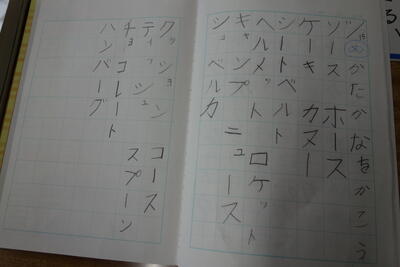 め かたかなをかこう
ソース ホース
ケーキ カヌー
シートベルト
ヘルメット ロケット
キャンプ ニュース
クッション コース
ティッシュ スプーン
チョコレート
ハンバーグ